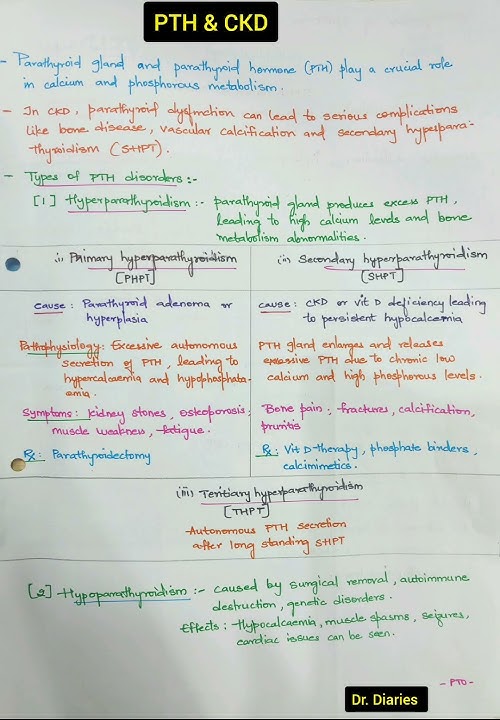 PTH & CKD
- Parathyroid gland and parathyroid hormone (PTH) play a crucial role
in calcium and phosphorous metabolism.
- In CKD, parathyroid dysfunction can lead to serious complications
like bone disease, vascular calcification and secondary hyperpara-
thyroidism (SHPT).
- Types of PTH disorders:-
[1] Hyperparathyroidism :- parathyroid gland produces excess PTH,
leading to high calcium levels and bone
metabolism abnormalities.
i) Primary hyperparathyroidism
[PHPT]
cause: Parathyroid adenoma or
hyperplasia
Pathophysiology: Excessive autonomous
secretion of PTH, leading to
hypercalcaemia and hypophosphata-
emia.
Symptoms: kidney stones, osteoporosis,
muscle weakness, fatigue.
Rx: Parathyroidectomy
(ii) Secondary hyperparathyroidism
[SHPT]
cause: CKD or vit D deficiency leading
to persistent hypocalcemia
PTH gland enlarges and releases
excessive PTH due to chronic low
calcium and high phosphorous levels.
Bone pain, fractures, calcification,
pruritis
Rx: Vit D-therapy, phosphate binders,
calcimimetics.
(iii) Tertiary hyperparathyroidism
[THPT]
Autonomous PTH secretion
after long standing SHPT
[2] Hypoparathyroidism :- caused by surgical removal, autoimmune
destruction, genetic disorders.
Effects: Hypocalcaemia, muscle spasms, seizures,
cardiac issues can be seen.
- PTO -
Dr. Diaries